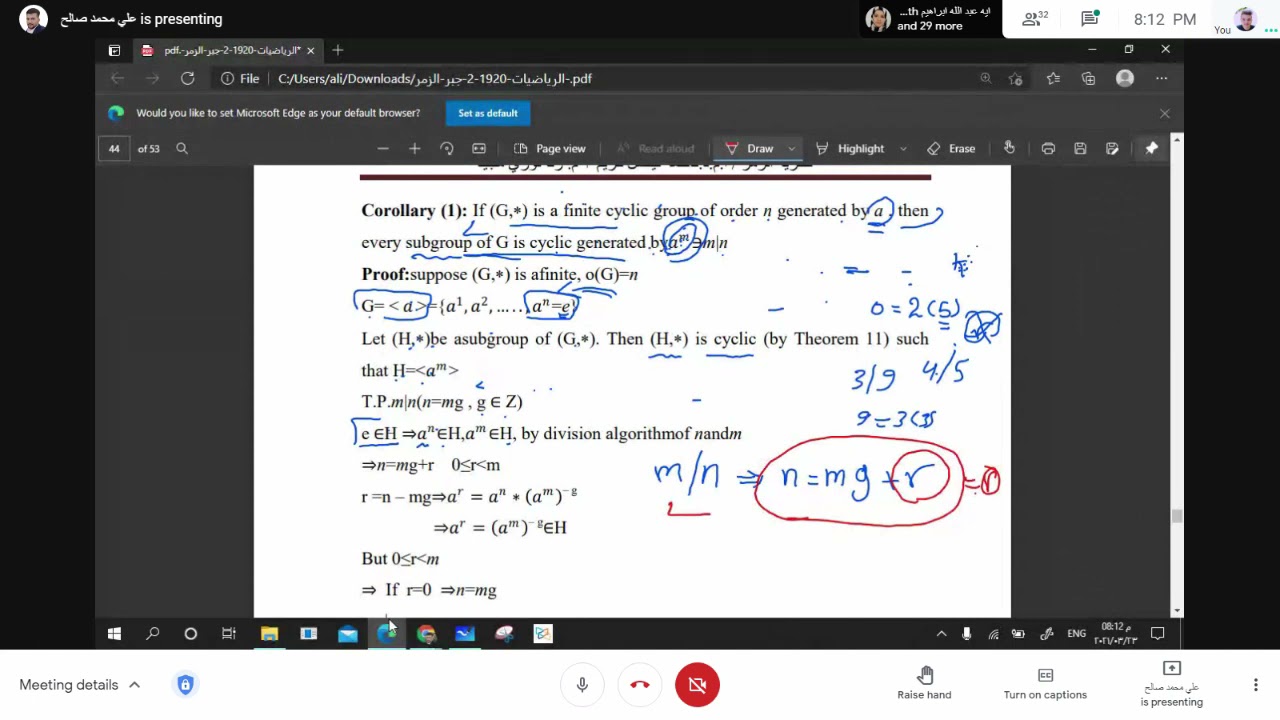 علي محمد صالح is presenting
ايه عبد الله ابراهيم th...
and 29 more
32
8:12 PM
You
الرياضيات-1920-2-جبر-الزمر-.pdf
File C:/Users/ali/Downloads/الرياضيات-1920-2-جبر-الزمر-.pdf
Would you like to set Microsoft Edge as your default browser? Set as default
44 of 53 Page view Read aloud Draw Highlight Erase
Corollary (1): If (G,*) is a finite cyclic group of order n generated by a , then
every subgroup of G is cyclic generated by aᵐ ∋ m|n
Proof:suppose (G,*) is afinite, o(G)=n
G= < a >={a¹, a², ….., aⁿ=e}
0 = 2 (5)
Let (H,*)be asubgroup of (G,*). Then (H,*) is cyclic (by Theorem 11) such
that H=<aᵐ>
3/9 4/5
T.P.m|n(n=mg , g ∈ Z)
9 = 3(3)
e ∈H ⇒aⁿ∈H,aᵐ ∈ H, by division algorithmof nandm
⇒n=mg+r 0≤r<m
m/n ⇒ n = mg + r = 0
r =n – mg⇒aʳ = aⁿ * (aᵐ)⁻ᵍ
⇒aʳ = (aᵐ)⁻ᵍ∈H
But 0≤r<m
⇒ If r=0 ⇒n=mg
ENG
08:12 م
٢٠٢١/٠٣/٢٣
Meeting details
Raise hand
Turn on captions
علي محمد صالح
is presenting